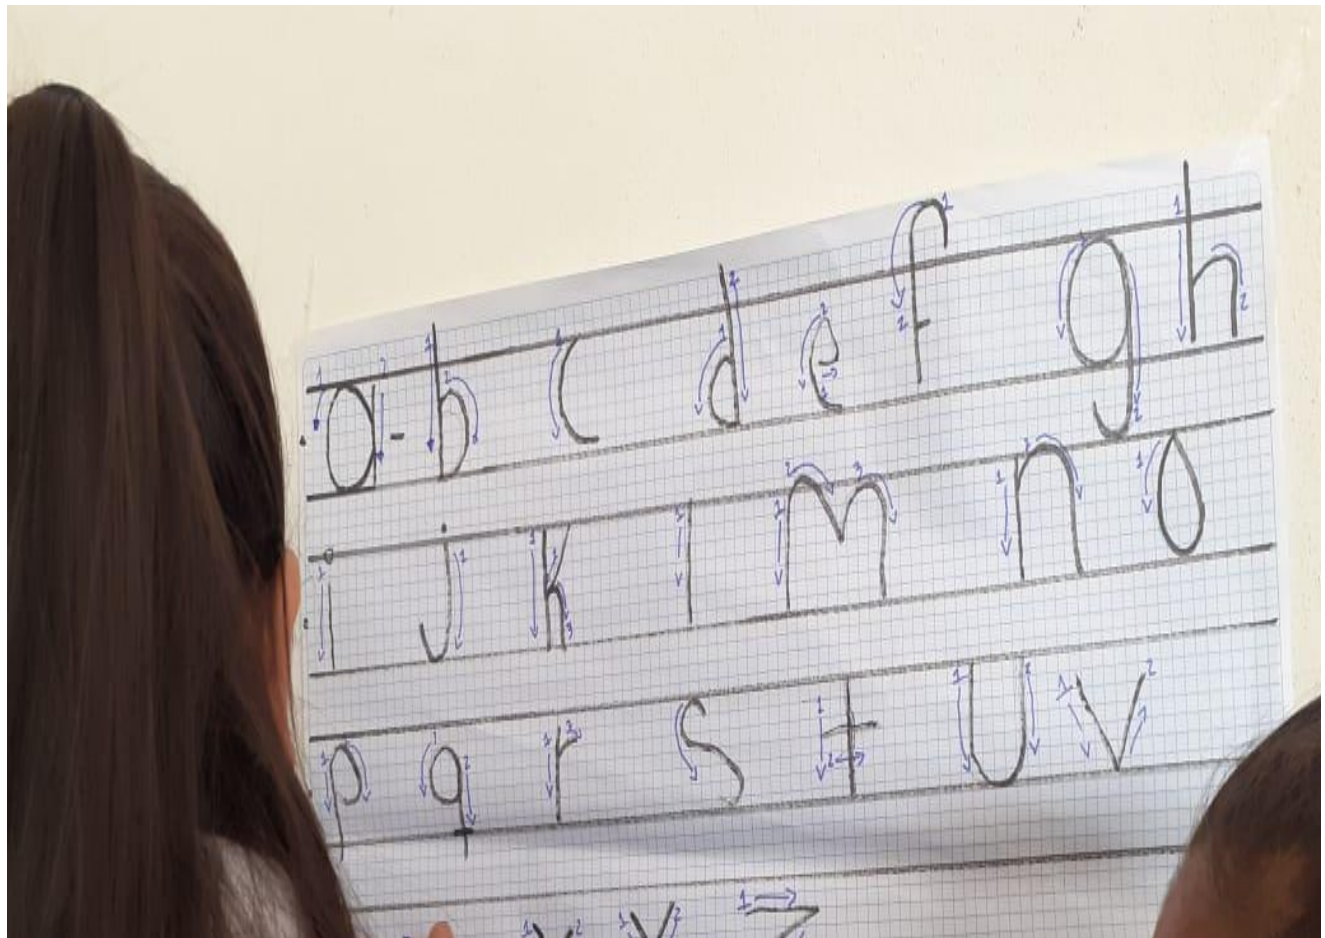 a - b c d e f g h
i j k l m n o
p q r s t u v
x y z